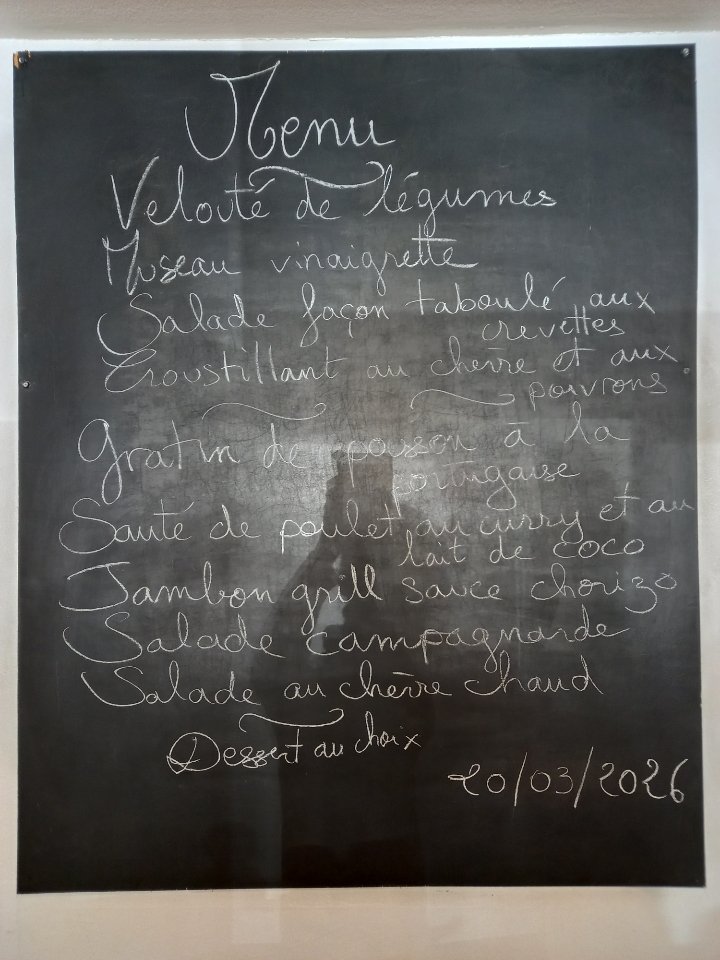 Menu
Velouté de légumes
Museau vinaigrette
Salade façon taboulé aux
crevettes
Croustillant au chèvre et aux
poivrons
Gratin de poisson à la
portugaise
Sauté de poulet au curry et au
lait de coco
Jambon grill sauce chorizo
Salade campagnarde
Salade au chèvre chaud
Dessert au choix
20/03/2026